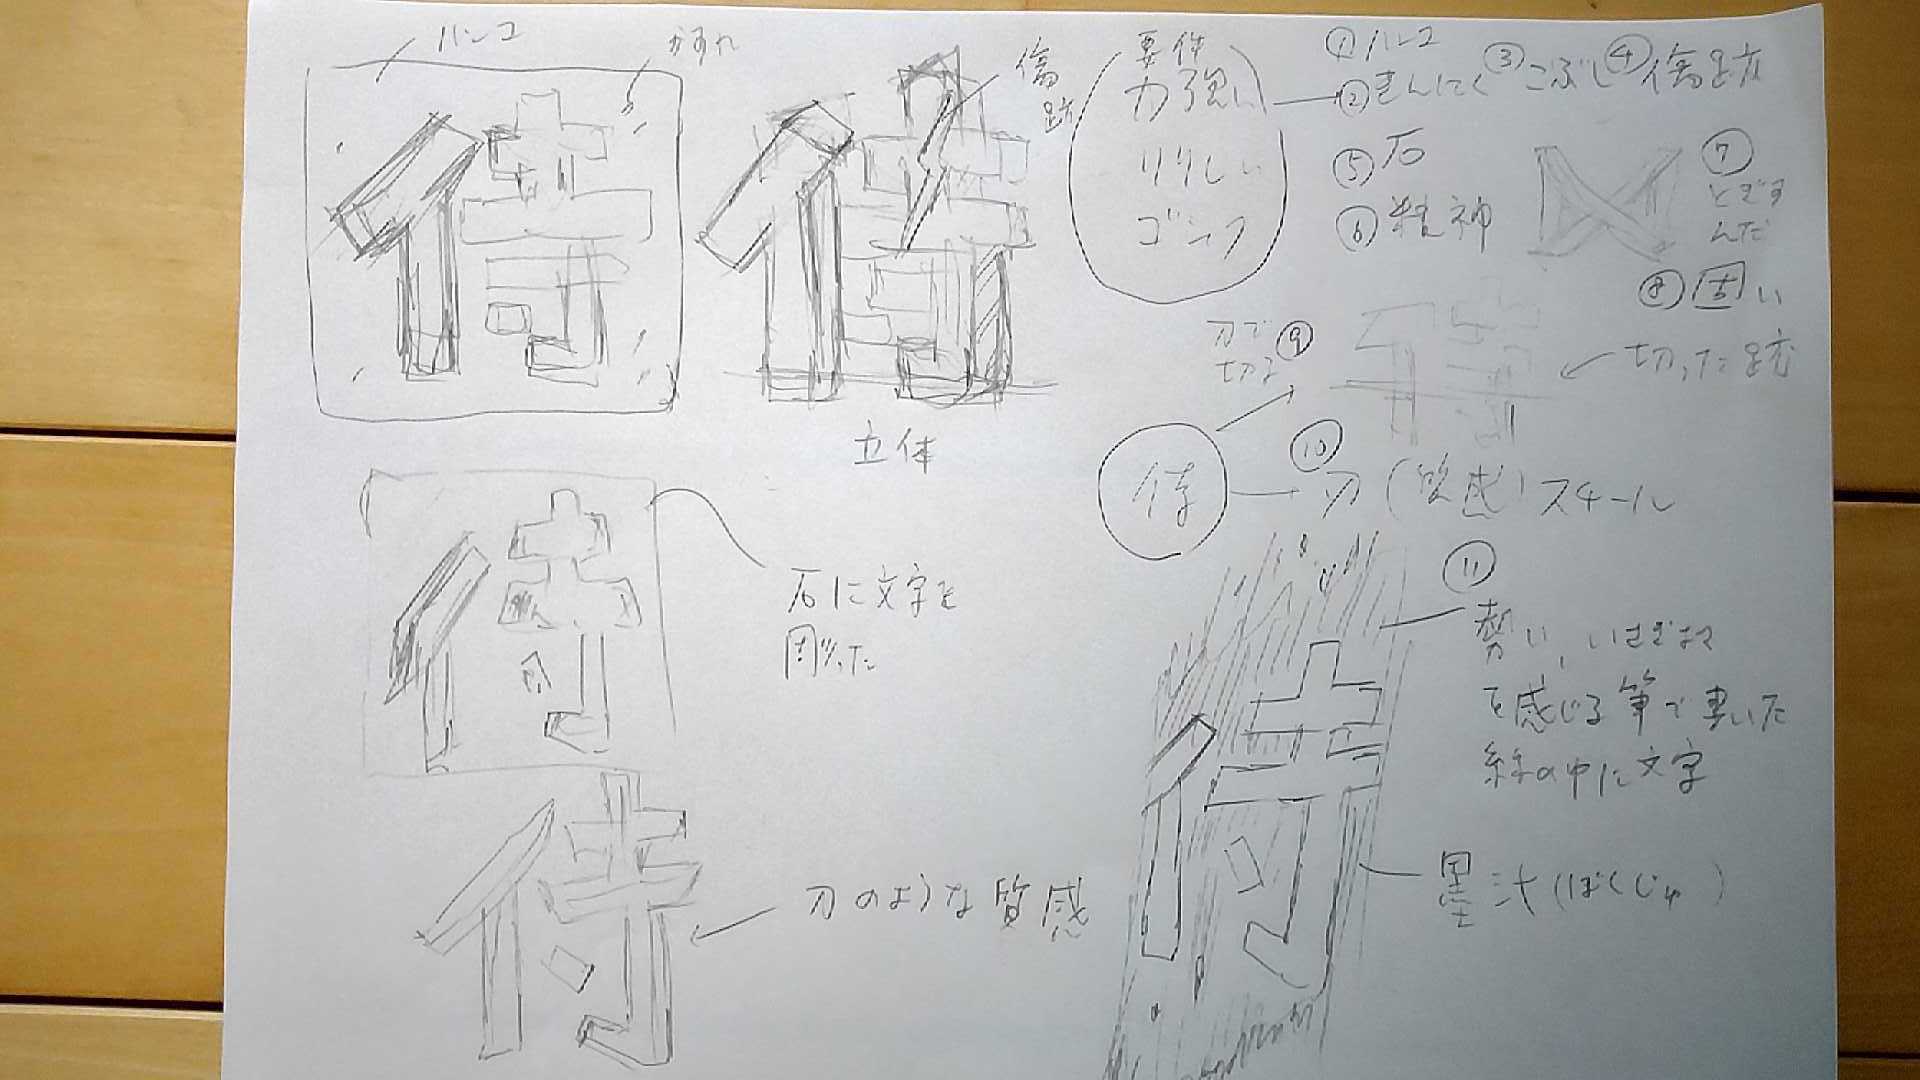 ハンコ
かすれ
侍
侍
傷
跡
立体
要件
力強い
りりしい
ゴシック
①ハンコ
②きんにく ③こぶし ④傷跡
⑤石
⑥精神
⑦
とぎす
んだ
⑧固い
刀で
切る
⑨
侍
切った跡
侍
⑩
刃(質感)スチール
侍
石に文字を
彫った
侍
刀のような質感
⑪
勢い、いさぎよさ
を感じる筆で書いた
線の中に文字
侍
墨汁(ぼくじゅ)